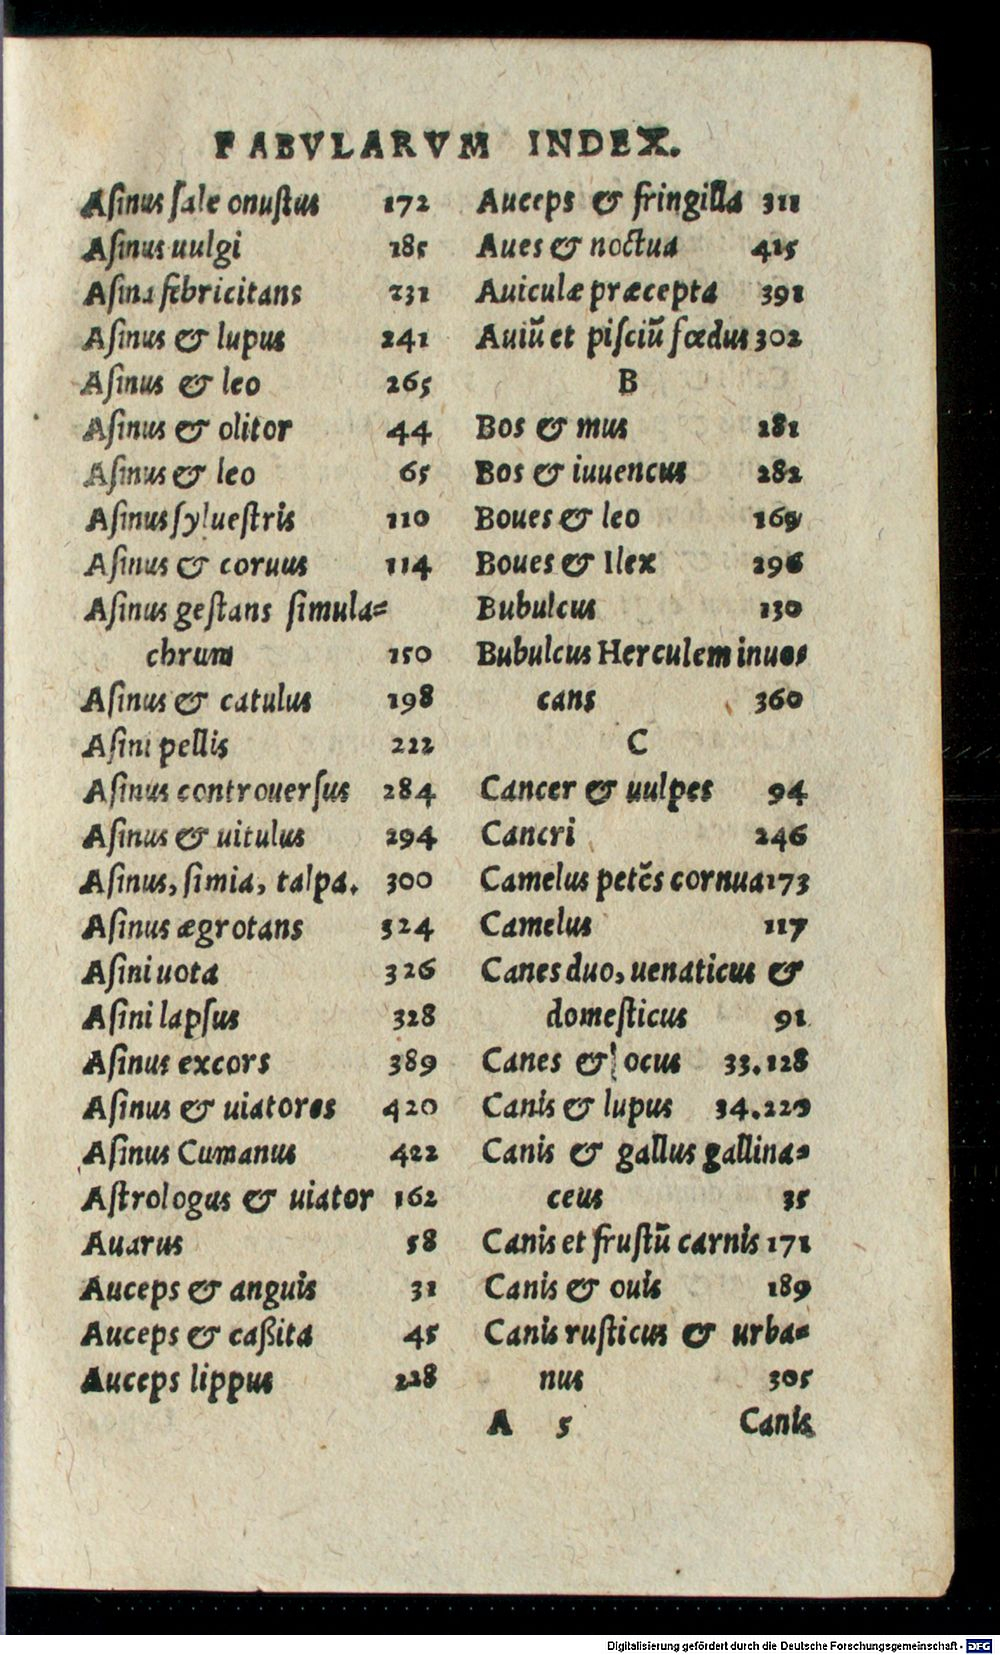 FABVLARVM INDEX.
Aſinus ſale onuſtus 172
Aſinus uulgi 185
Aſina febricitans 231
Aſinus & lupus 241
Aſinus & leo 265
Aſinus & olitor 44
Aſinus & leo 65
Aſinus ſylueſtris 110
Aſinus & coruus 114
Aſinus geſtans ſimula=
chrum 150
Aſinus & catulus 198
Aſini pellis 222
Aſinus controuerſus 284
Aſinus & uitulus 294
Aſinus, ſimia, talpa. 300
Aſinus ægrotans 324
Aſini uota 326
Aſini lapſus 328
Aſinus excors 389
Aſinus & uiatores 420
Aſinus Cumanus 422
Aſtrologus & uiator 162
Auarus 58
Auceps & anguis 31
Auceps & caßita 45
Auceps lippus 228
Auceps & fringilla 311
Aues & noctua 415
Auiculæ præcepta 391
Auiū et piſciū fœdus 302
B
Bos & mus 181
Bos & iuuencus 282
Boues & leo 169
Boues & Ilex 296
Bubulcus 130
Bubulcus Herculem inuo=
cans 360
C
Cancer & uulpes 94
Cancri 246
Camelus petēs cornua 173
Camelus 117
Canes duo, uenaticus &
domeſticus 91
Canes & ocus 33.128
Canis & lupus 34.220
Canis & gallus gallina=
ceus 35
Canis et fruſtū carnis 171
Canis & ouis 189
Canis ruſticus & urba=
nus 305
A 5 Canis
Digitalisierung gefördert durch die Deutsche Forschungsgemeinschaft - DFG